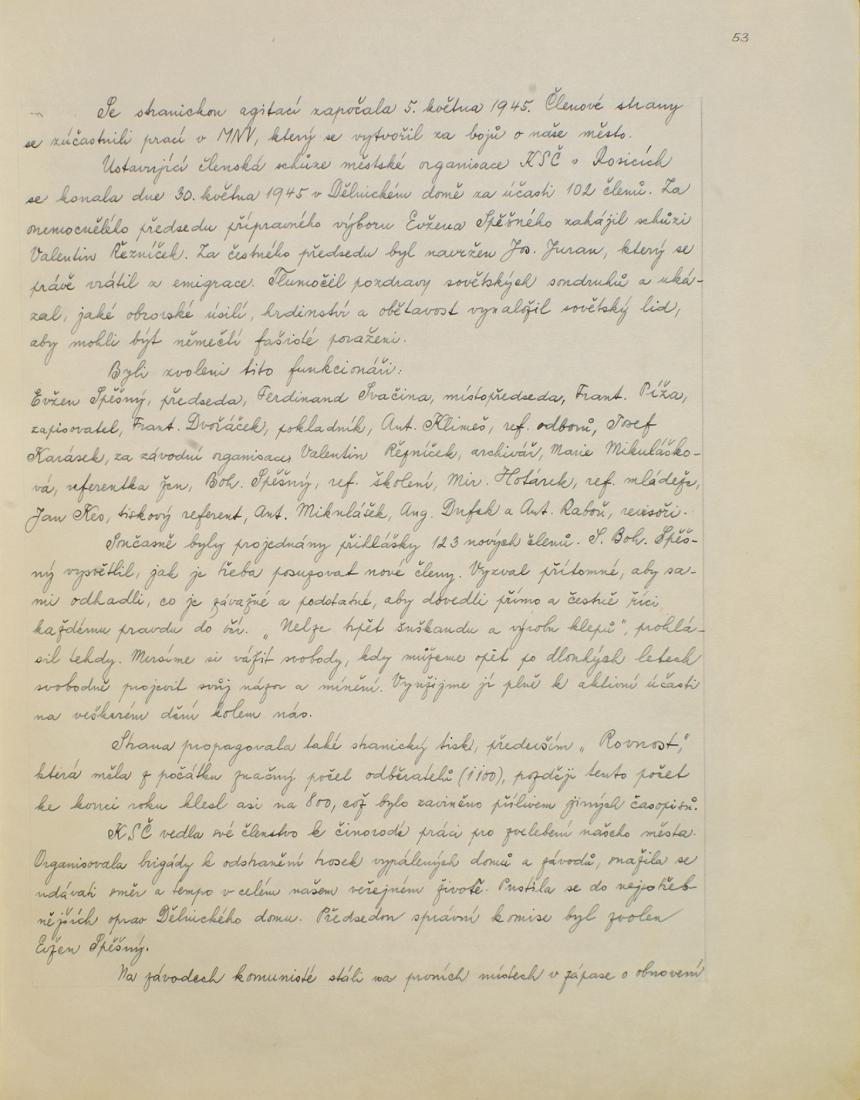 53
Se stranickou agitací započala 5. května 1945. Členové strany
se zúčastnili prací v MNV, který se vytvořil za bojů o naše město.
Ustavující členská schůze městské organisace KSČ v Rosicích
se konala dne 30. května 1945 v Dělnickém domě za účasti 102 členů. Za
onemocnělého předsedu přípravného výboru Evžena Spěšného zahájil schůzi
Valentin Řezníček. Za čestného předsedu byl navržen Jos. Juran, který se
právě vrátil z emigrace. Tlumočil pozdravy sovětských soudruhů a uká-
zal, jaké obrovské úsilí, hrdinství a obětavost vynaložil sovětský lid,
aby mohli být němečtí fašisté poraženi.
Byli zvoleni tito funkcionáři:
Evžen Spěšný, předseda, Ferdinand Svačina, místopředseda, Frant. Píža,
zapisovatel, Frant. Dvořáček, pokladník, Ant. Klimeš, ref. odborů, Josef
Karásek, za závodní organisace, Valentin Řezníček, archivář, Marie Mikuláško-
vá, referentka žen, Boh. Spěšný, ref. školení, Mir. Hotárek, ref. mládeže,
Jan Kes, tiskový referent, Ant. Mikulášek, Aug. Dufek a Ant. Raboň, revisoři.
Současně byly projednány přihlášky 123 nových členů. S. Boh. Spěš-
ný vysvětlil, jak je třeba posuzovat nové členy. Vyzval přítomné, aby sa-
mi odhadli, co je závažné a podstatné, aby dovedli přímo a čestně říci
každému pravdu do očí. „Nelze trpět šuškandu a výrobu klepů", prohlá-
sil tehdy. Musíme si vážit svobody, kdy můžeme opět po dlouhých letech
svobodně projevit svůj názor a mínění. Využijme jí plně k aktivní účasti
na veškerém dění kolem nás.
Strana propagovala také stranický tisk, především „Rovnost",
která měla z počátku značný počet odběratelů (1100), později tento počet
ke konci roku klesl asi na 800, což bylo zaviněno přílivem jiných časopisů.
KSČ vedla své členstvo k činorodé práci pro zvelebení našeho města.
Organisovala brigády k odstranění trosek vypálených domů a závodů, snažila se
udávati směr a tempo v celém našem veřejném životě. Pustila se do nejpotřeb
nějších oprav Dělnického domu. Předsedou správní komise byl zvolen
Evžen Spěšný.
Na závodech komunisté stáli na prvních místech v zápase o obnovení